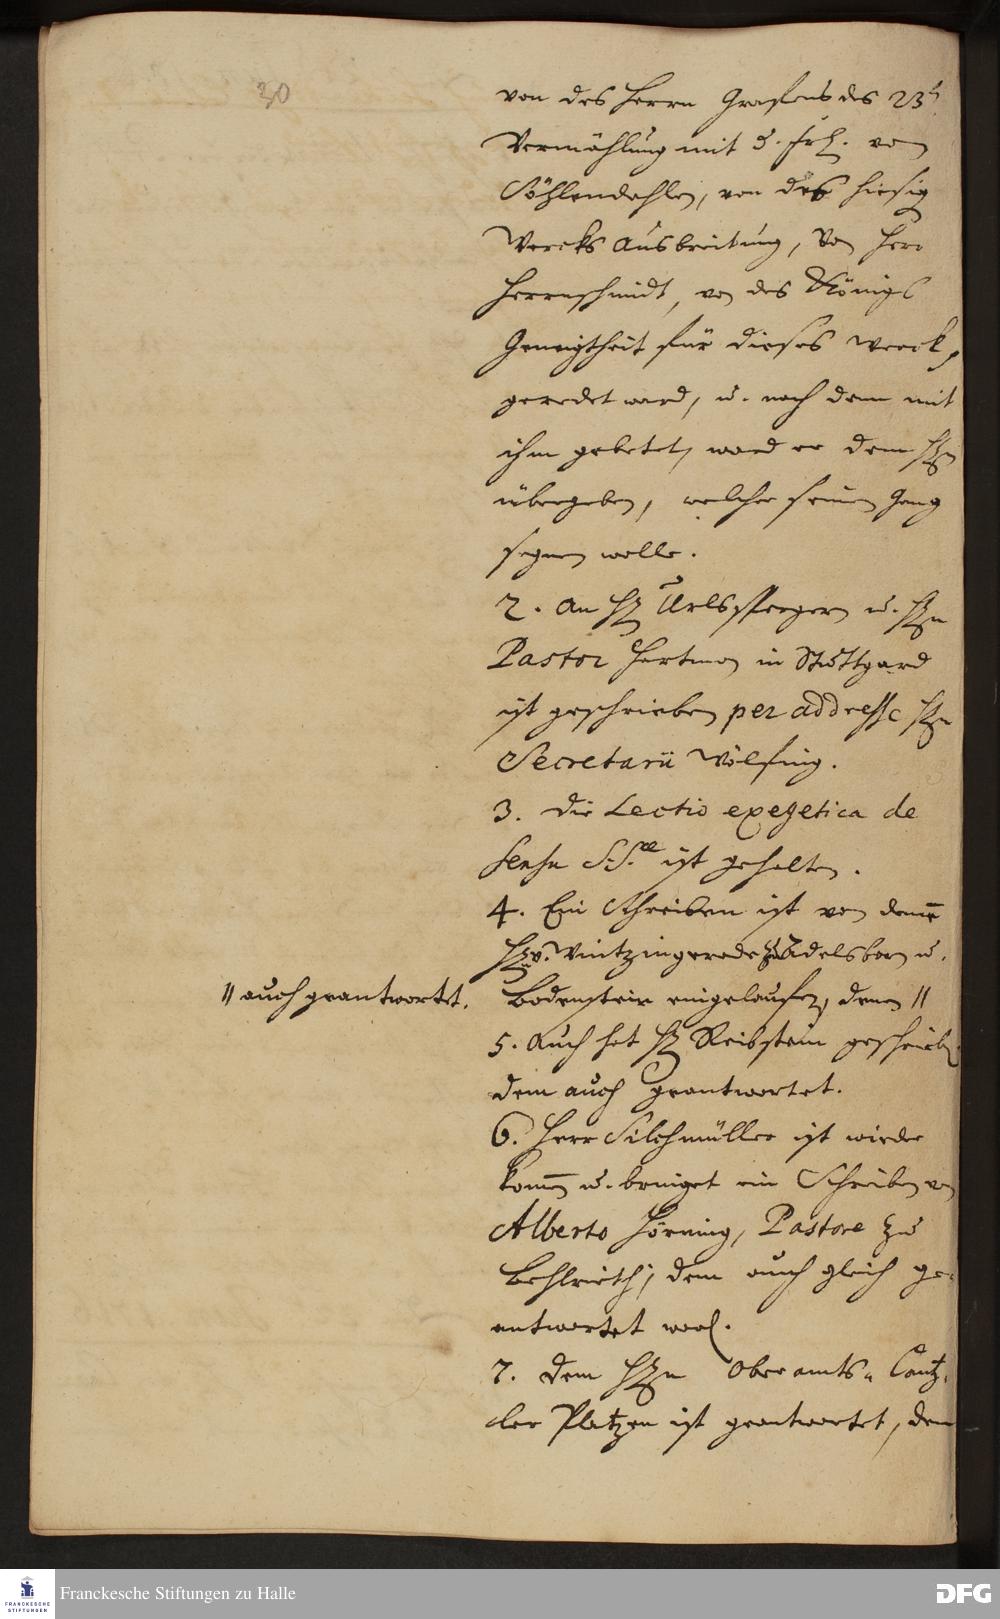 30
von des Herrn Grafens des 23t
Vermählung mit d. Frl. von
Söhlendahlen, von des hiesig
Wercks Ausbreitung, von Herr
Herrnschmidt, von des Königs
Geneigtheit für dieses Werck,
geredet ward, u. nach dem mit
ihm gebetet, ward er dem HErn
übergeben, welcher seinen Gang
segnen wolle.
2. An H. Urlsperger u. Hn
Pastor Hartman in Stuttgard
ist geschrieben per addresse Hn
Secretarii Wölfing.
3. Die Lectio exegetica de
sensu S. S.rae ist gehalten.
4. Ein Schreiben ist von denen
Hn v. Wintzingerode zu Adelsborn u.
// auch geantwortet.
Bodenstein eingelauffen, denen //
5. Auch hat H. Reibstein geschrieben
dem auch geantwortet.
6. Herr Silchmüller ist wieder
kommen u. bringet ein Schreiben von
Alberto Hörning, Pastore zu
Behlrieth, dem auch gleich ge-
antwortet word.
7. Dem Hn Oberamts-Cantz-
ler Platzen ist geantwortet, dem
FRANCKESCHE STIFTUNGEN
Franckesche Stiftungen zu Halle
DFG